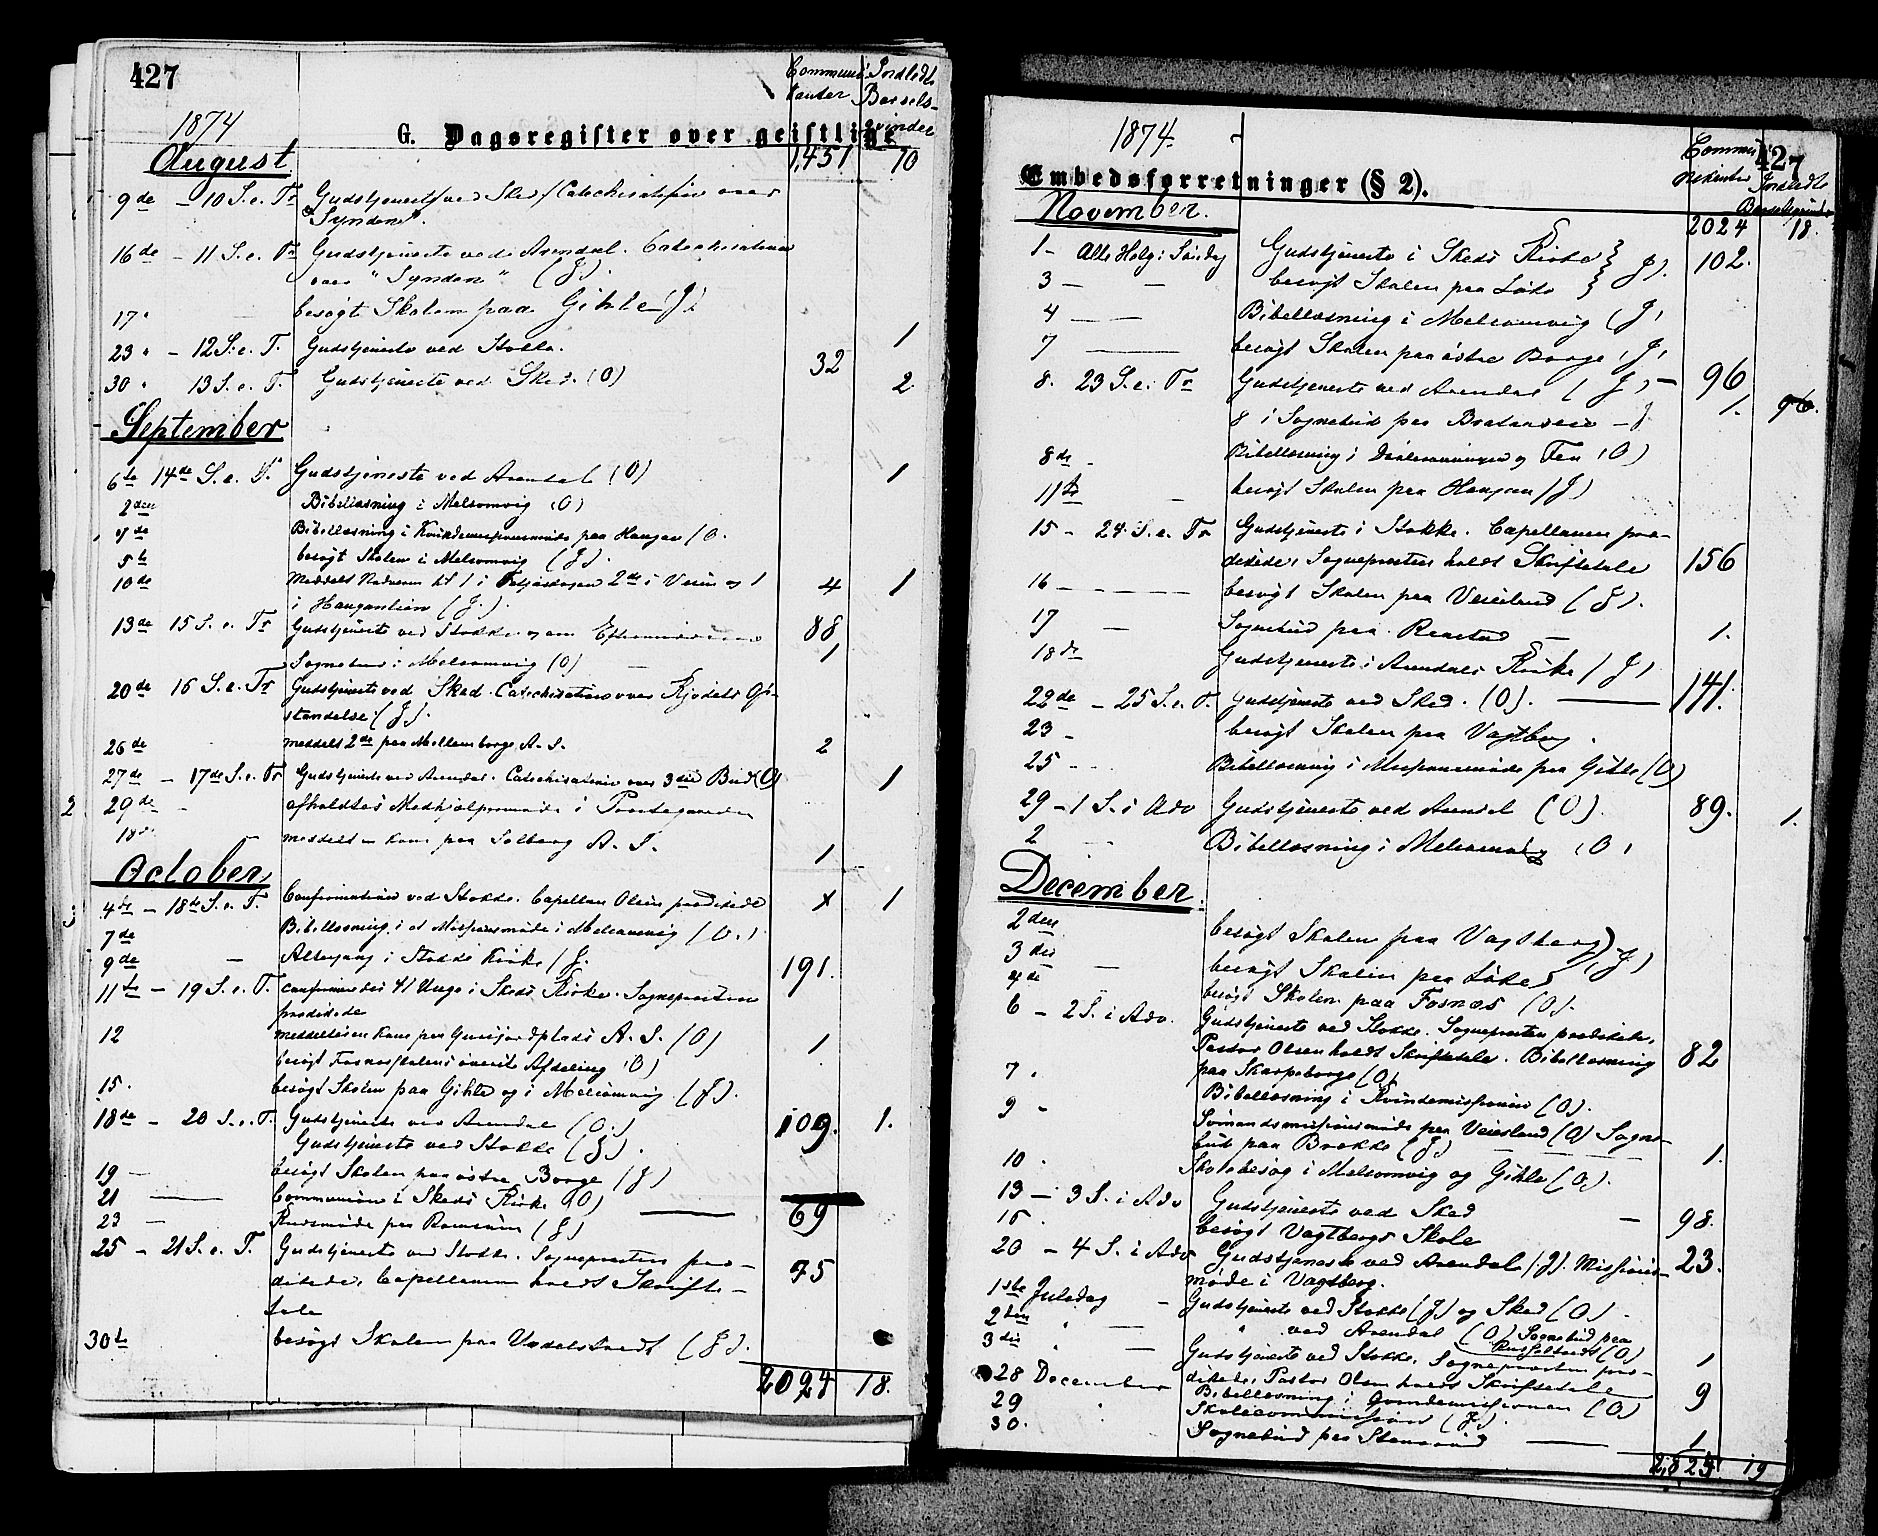 427
1874
Communi- Indledte
kanter Barsels-
kvinder
G. Dagsregister over geistlige
August 1,451 10
9de - 10 S. e. Tr Gudstjeneste ved Sked / Catechisation over
"Synden".
16de - 11 S. e. Tr Gudstjeneste ved Arendal. Catechisation
over "Synden" (J).
17 besøgt Skolen paa Gihle (J)
23 - 12 S. e. T. Gudstjeneste ved Stokke. 1
30 13 S. e. T. Gudstjeneste ved Sked. (O) 32 2
September
6te 14de S. e. T. Gudstjeneste ved Arendal (O) 1
2den Bibellæsning i Melsomvig (O)
4de Bibellæsning i Kvindemissionsmøde paa Haugan (O.
5te besøgt Skolen i Melsomvig (J).
10de Meddelt Nadveren til 1 i 2de i Veien og 1 4 1
i Hauganlien (J.).
13de 15 S. e. Tr Gudstjeneste ved Stokke 88
Sognebud i Melsomvig (O) 1
20de 16 S. e. Tr Gudstjeneste ved Sked. Catechisation over Kjødets Op-
standelse (J).
26de meddelt 2de paa Mellemborge A. S. 2
27de - 17de S. e. Tr Gudstjeneste ved Arendal. Catechisation over 3die Bud (O) 1
29de - afholdtes Medhjælpermøde i Præstegaarden
18de meddelt en Kone paa Solberg A. S. 1
October
4de - 18de S. e. T. Confirmation ved Stokke. Capellan Olsen prædikede x 1
7de Bibellæsning i et Missionsmøde i Melsomvig (O.)
9de - Altergang i Stokke Kirke (J. 191.
11te - 19 S. e. T. confirmeredes 41 Unge i Skeds Kirke. Sognepresten
prædikede
12 meddelt en Kone paa plads A. S. (O) 1
besøgt Fosnæsskolens øverste Afdeling (O)
15. besøgt Skolen paa Gihle og i Melsomvig (J).
18de - 20 S. e. T. Gudstjeneste ved Arendal (O.) 109. 1.
Gudstjeneste ved Stokke (J).
19 - besøgt Skolen paa østre Borge (J)
21 Communion i Skeds Kirke (O) 69
23 - Kredsmøde paa (J)
25 - 21 S. e. T. Gudstjeneste ved Stokke. Sognepresten præ- 75
dikede, Capellanen holdt Skrifte-
tale
30te besøgt Skolen paa Vadelstvedt (J).
2024 18.
1874.
427
Commu- Indledte
nikanter Barselkvinder
Embedsforretninger (§ 2).
November. 2024 18.
1 - Alle Helg: Søndag Gudstjeneste i Skeds Kirke } J). 102.
3 - - besøgt Skolen paa Løke }
4 - - Bibellæsning i Melsomvig (J)
7 besøgt Skolen paa østre Borge (J)
8. 23 S. e. Tr Gudstjeneste ved Arendal (J) - 96
8 i Sognebud paa - J. 1. 96.
8de - Bibellæsning i og Fen (O)
11te - besøgt Skolen paa Haugan (J)
15 - 24. S. e. Tr Gudstjeneste i Stokke. Capellanen præ-
dikede, Sognepresten holdt Skriftetale 156
16 besøgt Skolen paa Veierland (J).
17 - Sognebud paa Reastad - 1.
18de Gudstjeneste i Arendals Kirke (J)
22de - 25 S. e. T. Gudstjeneste ved Sked. (O). 141.
23 - besøgt Skolen paa Vagtberg.
25 - Bibellæsning i Missionsmøde paa Gihle (O)
29 - 1 S. i Adv Gudstjeneste ved Arendal (O). 89. 1.
2 Bibellæsning i Melsomvig (O)
December.
2den besøgt Skolen paa Vagtberg) (J)
3die - besøgt Skolen paa Løke
4de besøgt Skolen paa Fosnæs (O).
6 - 2 S. i Adv. Gudstjeneste ved Stokke. Sognepresten prædikede,
Pastor Olsen holdt Skriftetale. Bibellæsning 82
7. paa Skarpeborge (O)
Bibellæsning i Kvindemissionen (O).
9 - Sømandsmissionsmøde paa Veierland (O) Sogne-
bud paa Brække (J) 1.
10. Skolebesøg i Melsomvig og Gihle (O).
13 - 3 S. i Adv Gudstjeneste ved Sked - 98.
15. besøgt Vagtbergs Skole
20 - 4 S. i Adv Gudstjeneste ved Arendal (J). Missions- 23.
møde i Vagtberg.
1ste Juledag - Gudstjeneste ved Stokke (J) og Sked (O) -
2den " - " ved Arendal (O) Sognebud paa
(O) 1
3die - Gudstjeneste ved Stokke. Sognepresten præ-
28 December dikede, Pastor Olsen holdt Skriftetale 9
29 Bibellæsning i Qvindemissionen (O)
Skolecommission (J).
30. Sognebud paa 1
2,825 19